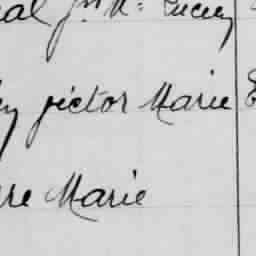 al Jn M. Lucey
y pictor Marie E
re Marie